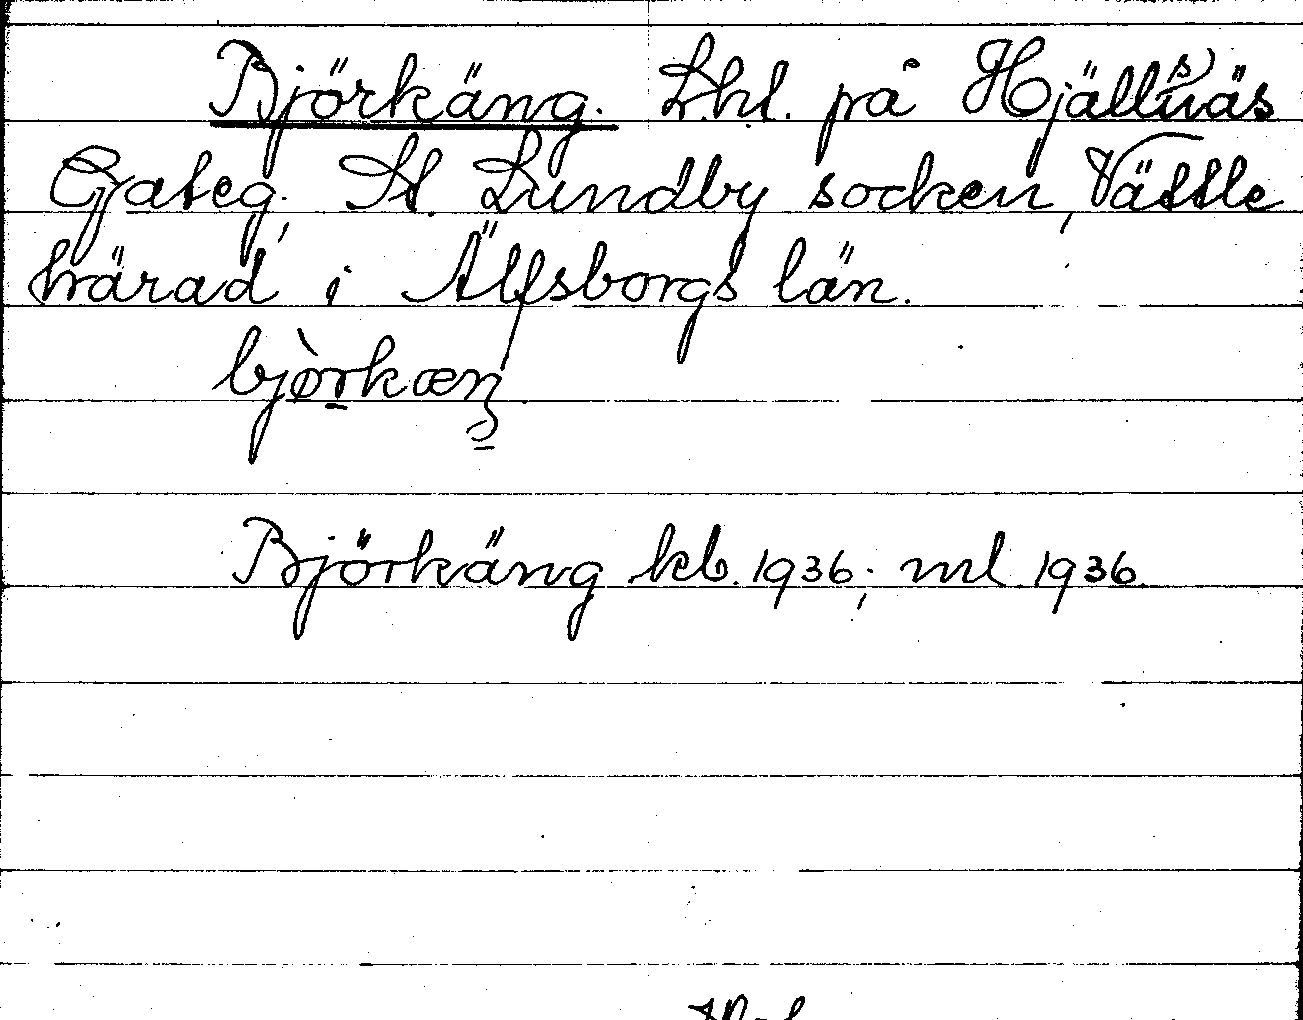 Björkäng. Lhl. på Hjäll(s)näs
Gateg. St. Lundby socken, Vättle
härad i Älfsborgs län.
bjòrkæŋ
Björkäng kb. 1936; ml 1936.